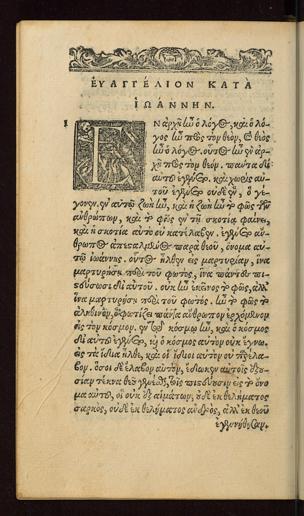 ΕΥΑΓΓΕΛΙΟΝ ΚΑΤΑ
ΙΩΑΝΝΗΝ.
1
ΕΝ ἀρχῇ ἦν ὁ λόγος, καὶ ὁ λό-
γος ἦν πρὸς τὸν θεὸν, & θεὸς
ἦν ὁ λόγος. οὗτος ἦν ἐν ἀρ-
χῇ πρὸς τὸν θεόν. πάντα δι'
αὐτοῦ ἐγένετο. καὶ χωρὶς αὐ-
τοῦ ἐγένετο οὐδὲ ἓν, ὃ γέ-
γονεν. ἐν αὐτῷ ζωὴ ἦν, καὶ ἡ ζωὴ ἦν τὸ φῶς τῶν
ἀνθρώπων, καὶ τὸ φῶς ἐν τῇ σκοτίᾳ φαίνει,
καὶ ἡ σκοτία αὐτὸ οὐ κατέλαβεν. ἐγένετο ἄν-
θρωπος ἀπεσταλμένος παρὰ θεοῦ, ὄνομα αὐ-
τῷ ἰωάννης. οὗτος ἦλθεν εἰς μαρτυρίαν, ἵνα
μαρτυρήσῃ περὶ τοῦ φωτός, ἵνα πάντες πι-
στεύσωσι δι' αὐτοῦ. οὐκ ἦν ἐκεῖνος τὸ φῶς, ἀλλ'
ἵνα μαρτυρήσῃ περὶ τοῦ φωτός. ἦν τὸ φῶς τὸ
ἀληθινὸν, ὃ φωτίζει πάντα ἄνθρωπον ἐρχόμενον
εἰς τὸν κόσμον. ἐν τῷ κόσμῳ ἦν, καὶ ὁ κόσμος
δι' αὐτοῦ ἐγένετο, καὶ ὁ κόσμος αὐτὸν οὐκ ἔγνω.
εἰς τὰ ἴδια ἦλθε, καὶ οἱ ἴδιοι αὐτὸν οὐ παρέλα-
βον. ὅσοι δὲ ἔλαβον αὐτὸν, ἔδωκεν αὐτοῖς ἐξου-
σίαν τέκνα θεοῦ γενέσθαι, τοῖς πιστεύουσιν εἰς τὸ ὄνο-
μα αὐτοῦ, οἳ οὐκ ἐξ αἱμάτων, οὐδὲ ἐκ θελήματος
σαρκὸς, οὐδὲ ἐκ θελήματος ἀνδρὸς, ἀλλ' ἐκ θεοῦ
ἐγεννήθησαν.